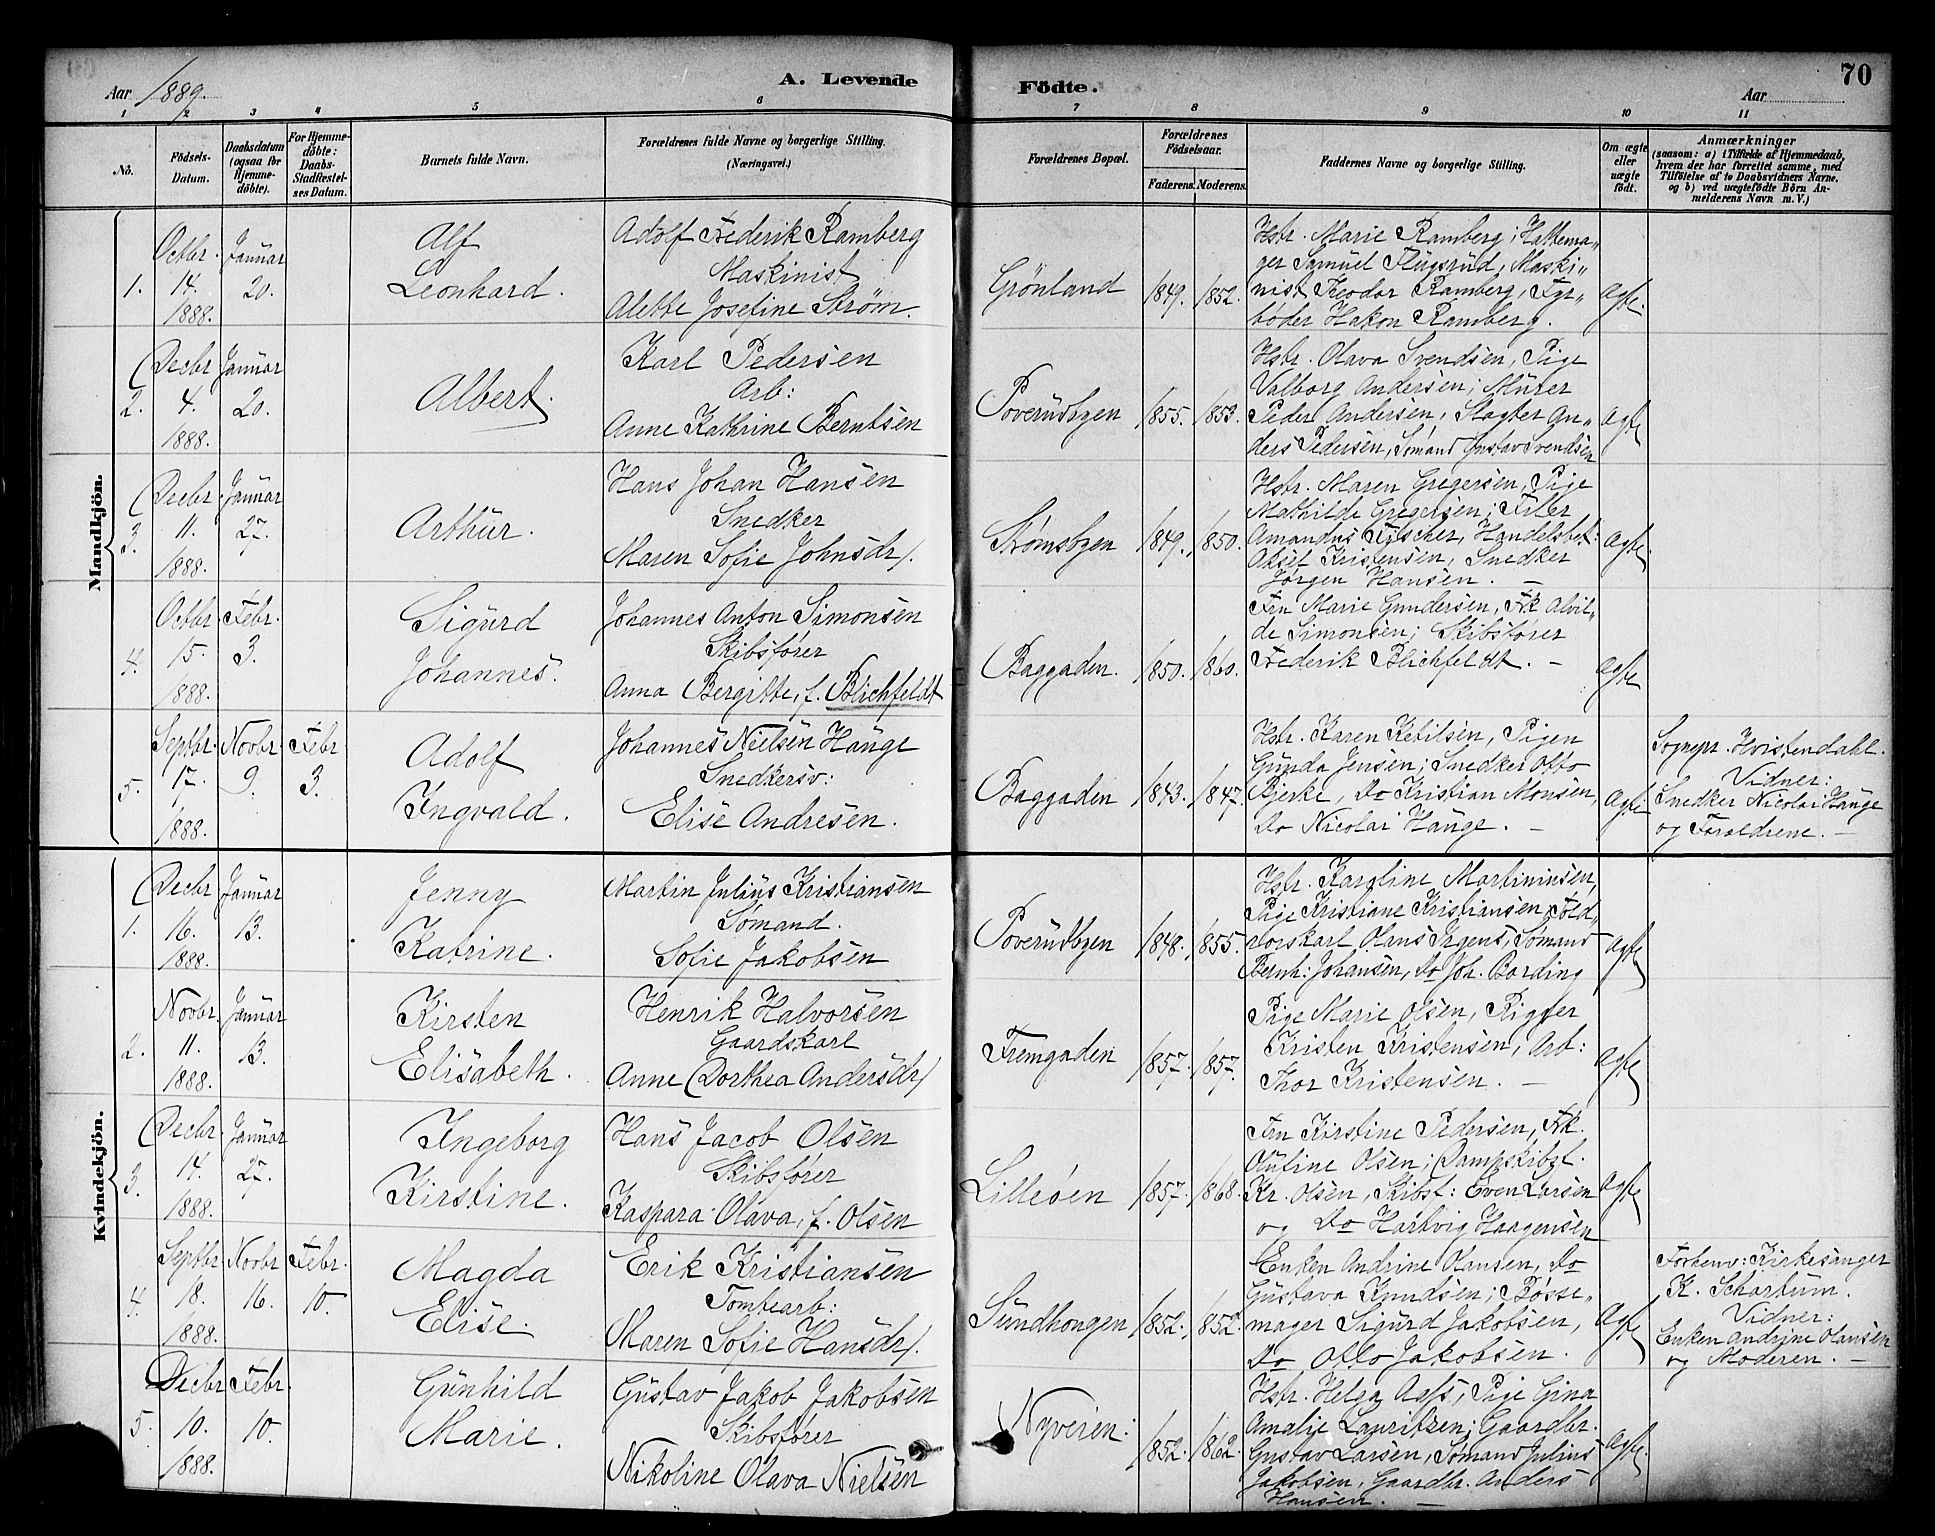 Aar 1889.
A. Levende Födte.
70
Aar
1 2 3 4 5 6 7 8 9 10 11
No.
Födsels-Datum.
Daabsdatum (ogsaa for Hjemme-döbte).
For Hjemme-döbte: Daabs-Stadfestel-ses Datum.
Barnets fulde Navn.
Forældrenes fulde Navne og borgerlige Stilling.
(Næringsvei.)
Forældrenes Bopæl.
Forældrenes Födselsaar.
Faderens. Moderens.
Faddernes Navne og borgerlige Stilling.
Om ægte eller uægte födt.
Anmærkninger
(saasom: a) i Tilfælde af Hjemmedaab,
hvem der har forrettet samme, med
Tilföielse af to Daabsvidners Navne,
og b) ved uægtefödte Börn An-
melderens Navn m. V.)
Mandkjön.
1.
Octbr. 14. 1888.
Januar 20.
Alf
Leonhard.
Adolf Frederik Ramberg
Maskinist
Alette Josefine Strøm.
Grönland
1849. 1852.
Hstr. Marie Ramberg; Hattema-
ger Samuel Flugsrud, Maski-
nist Theodor Ramberg, Fyr-
bøder Hakon Ramberg.
Ægte.
2.
Decbr 4. 1888.
Januar 20.
Albert.
Karl Pedersen
Arb:
Anne Kathrine Berntsen
Poverudbyen
1855. 1853.
Hstr. Olava Svendsen, Pige
Valborg Andersen; Murer
Peder Andersen, Slagter An-
ders Pedersen, Sømand Gustav Svendsen
Ægte
3.
Decbr 11. 1888.
Januar 27.
Arthur.
Hans Johan Hansen
Snedker
Maren Sofie Johnsdr.
Strømsbyen
1849. 1850.
Hstr. Maren Gregersen, Pige
Mathilde Gregersen; Filer
Amandus Fitscher, Handelsbet:
Aksel Kristensen, Snedker
Jørgen Hansen. —
Ægte.
4.
Octbr 15. 1888.
Febr. 3.
Sigurd
Johannes.
Johannes Anton Simonsen
Skibsfører
Anna Bergitte, f. Blichfeldt
Baggaden.
1850. 1860.
Fru Marie Gundersen, Frk Alvil-
de Simonsen; Skibsfører
Frederik Blichfeldt. —
Ægte
5.
Septbr. 17. 1888.
Novbr. 9.
Febr 3.
Adolf
Ingvald.
Johannes Nielsen Hauge
Snedkersv:
Elise Andresen.
Baggaden
1843. 1847.
Hstr. Karen Ketilsen, Pigen
Gunda Jensen; Snedker Otto
Bjerke, Do Kristian Monsen,
Do Nicolai Hauge. —
Ægte.
Sognepr. Hvistendahl.
Vidner:
Snedker Nicolai Hauge
og Forældrene. —
Kvindekjön.
1.
Decbr 16. 1888.
Januar 13.
Jenny
Katrine.
Martin Julius Kristiansen
Sømand.
Sofie Jakobsen
Poverudbyen
1848. 1855.
Hstr. Karoline Martininsen,
Pige Kristiane Kristiansen; Told-
rorskarl Olans Irgens, Sømand
Bernh: Johansen, Do Joh. Bording
Ægte
2.
Novbr. 11. 1888.
Januar 13.
Kirsten
Elisabeth.
Henrik Halvorsen
Gaardskarl
Anne Dorthea Andersdr.
Fremgaden
1857. 1857.
Pige Marie Olsen, Rigger
Kristen Kristensen, Arb:
Thor Kristensen. —
Ægte
3.
Decbr. 14. 1888.
Januar 27.
Ingeborg
Kirstine.
Hans Jacob Olsen
Skibsfører
Kaspara Olava, f. Olsen
Lilleøen
1857. 1868.
Fru Kirstine Pedersen, Frk.
Olufine Olsen; Dampskibsf.
Kr. Olsen, Skibsf: Even Larsen
og Do Hartvig Haagensen
Ægte
4.
Septbr 18. 1888.
Novbr 16.
Febr. 10.
Magda
Elise.
Erik Kristiansen
Tomtearb:
Maren Sofie Hansdr.
Sundhougen
1852. 1852.
Enken Andrine Hansen, Do
Gustava Knudsen; Bøsse-
mager Sigurd Jakobsen,
Do Otto Jakobsen.
Ægte
Forhenv: Kirkesanger
K. Schartum.
Vidner:
Enken Andrine Hansen
og Moderen. —
5.
Decbr 10. 1888.
Febr. 10.
Gunhild
Marie.
Gustav Jakob Jakobsen
Skibsfører
Nikoline Olava Nielsen
Nyveien:
1852. 1862.
Hstr. Helga Aass, Pige Gina
Amalie Lauritzen; Gaardbr.
Gustav Larsen, Sømand Julius
Jakobsen, Gaardbr. Anders
Hansen. —
Ægte.